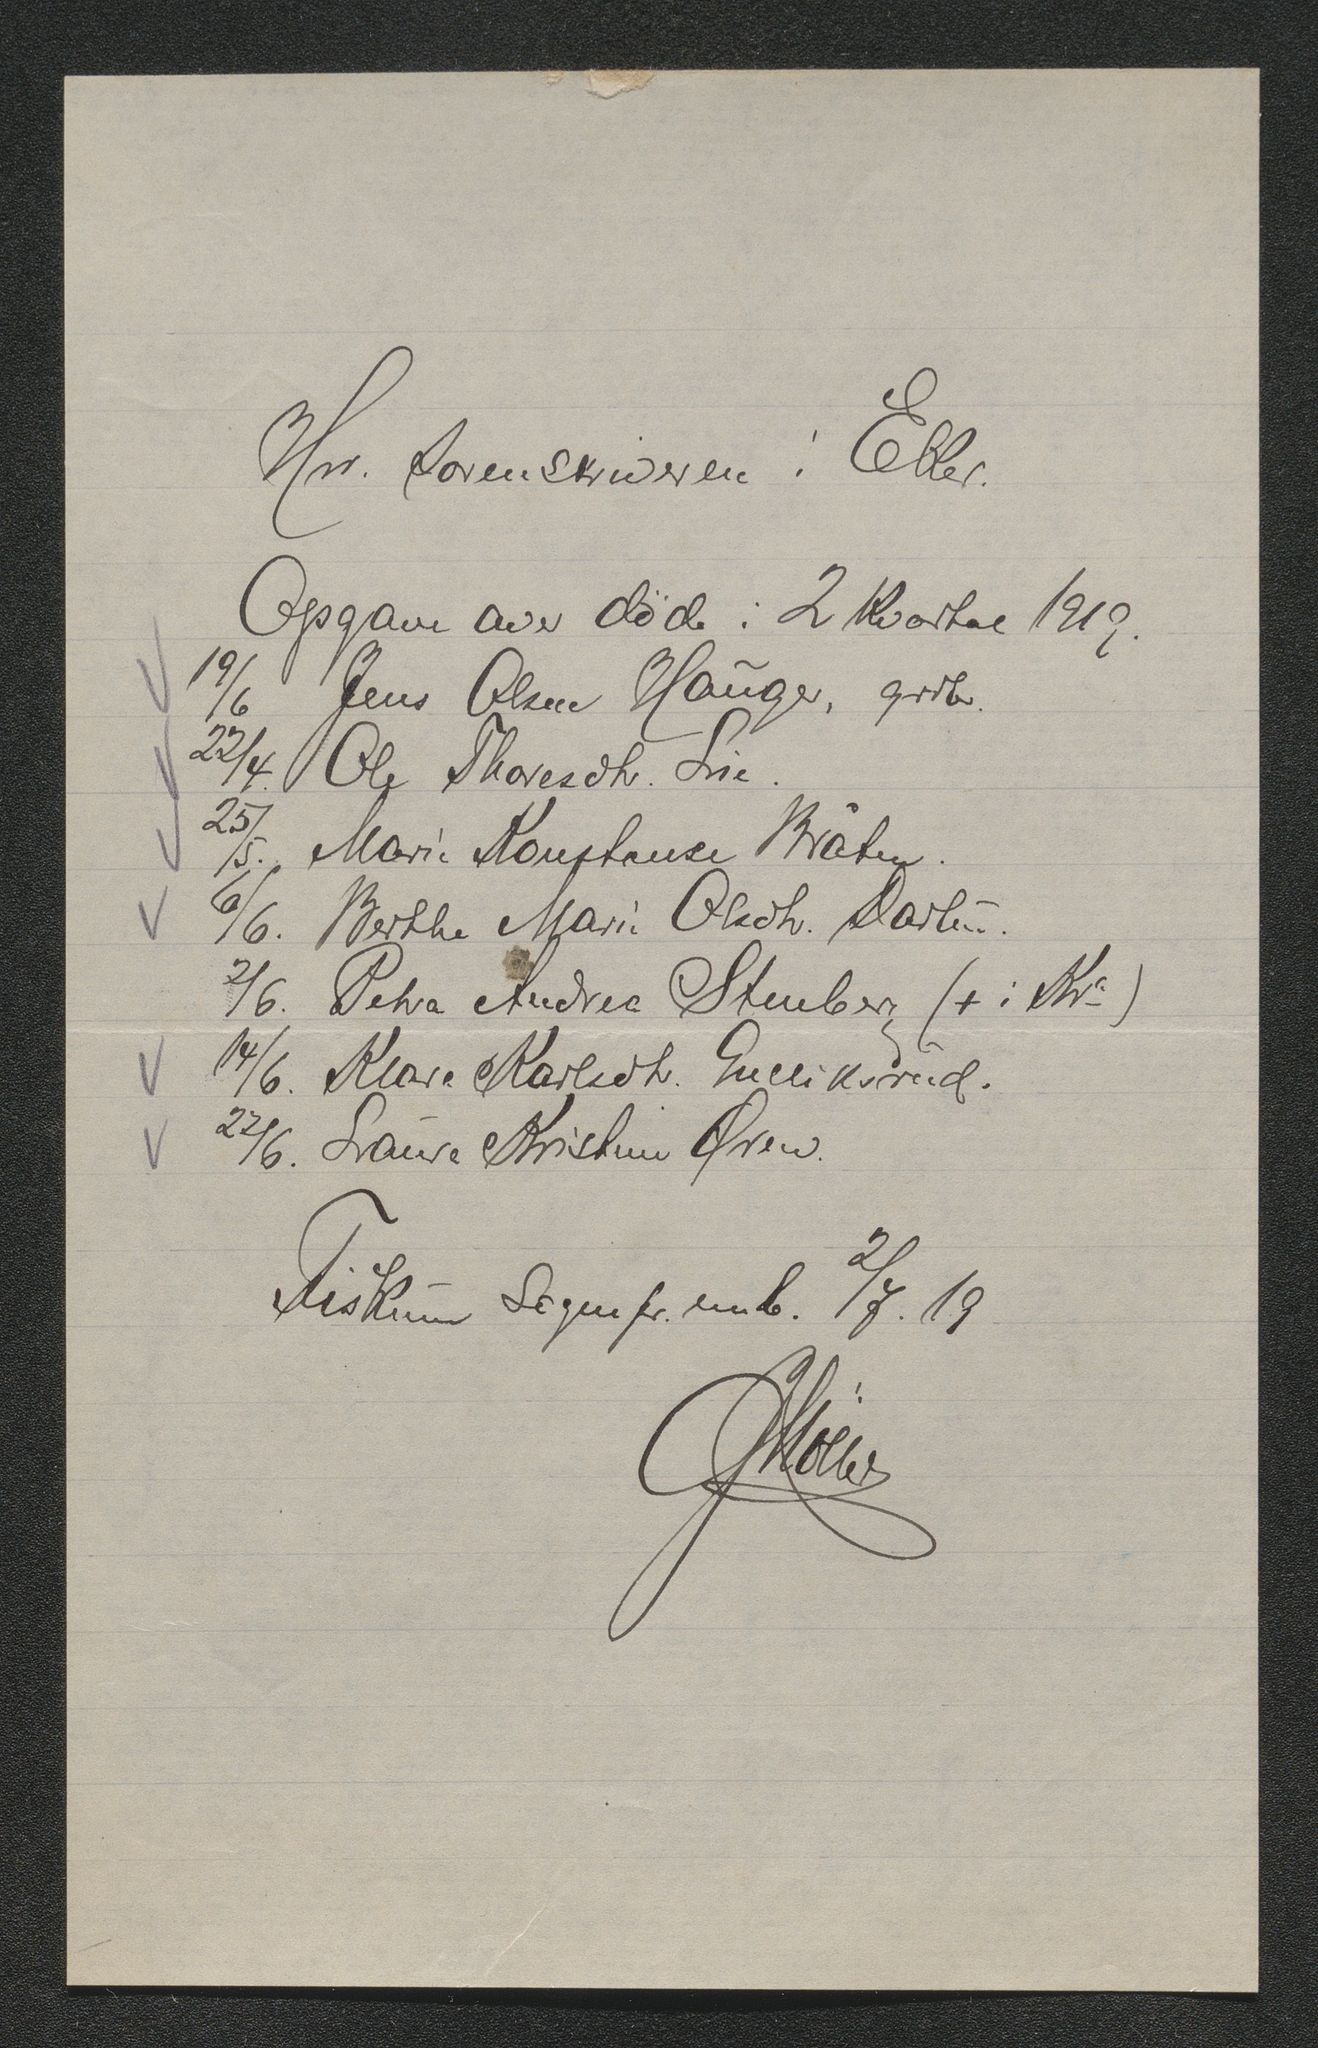 Hr. Sorenskriveren i Eker.
Opgave over döde i 2 Kvartal 1919.
19/6 Jens Olsen Hauger, grdbr.
22/4. Ole Thoresdtr. Lie.
25/5. Marie Konstanse Bråten.
6/6. Berthe Marie Olsdtr. Darbu.
2/6. Petra Andrea Stenberg (+ i Kra)
14/6. Klara Karlsdtr. Gulliksrud.
22/6. Laura Kristine Ören.
Fiskum Sognepr. emb. 2/7. 19
Möller